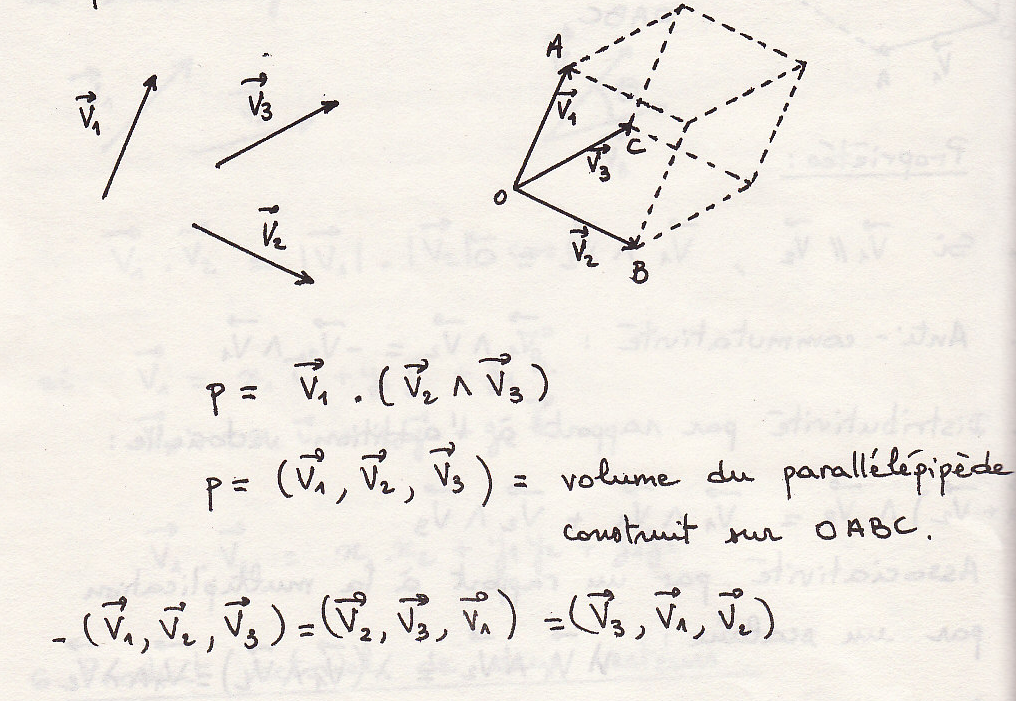 V⃗1
V⃗3
V⃗2
A
V⃗1
C
V⃗3
O
V⃗2
B
p = V⃗1 . ( V⃗2 ∧ V⃗3 )
p = ( V⃗1 , V⃗2 , V⃗3 ) = volume du parallélépipède
construit sur OABC.
- ( V⃗1 , V⃗2 , V⃗3 ) = ( V⃗2 , V⃗3 , V⃗1 ) = ( V⃗3 , V⃗1 , V⃗2 )